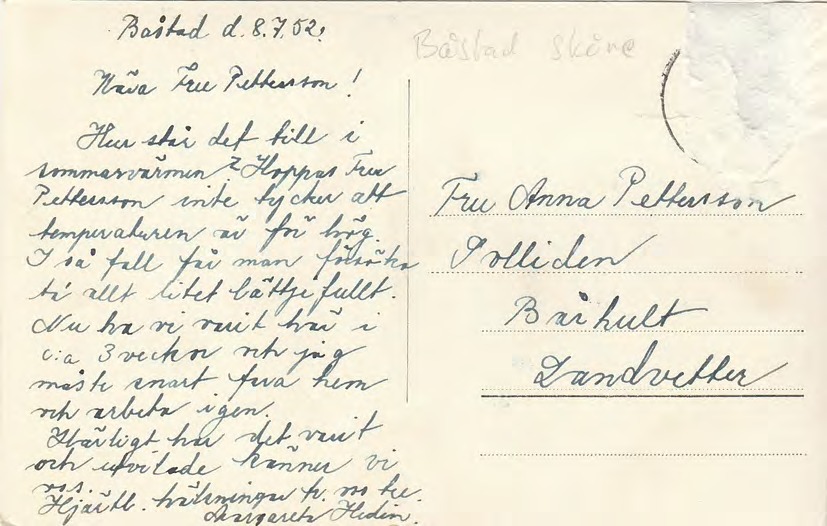 Båstad d. 8.7.52.
Kära Fru Pettersson!
Hur står det till i
sommarvärmen? Hoppas Fru
Pettersson inte tycker att
temperaturen är för hög.
I så fall får man försöka
ta' allt litet lättjefullt.
Nu ha vi varit här i
c:a 3 veckor och jag
måste snart fara hem
och arbeta igen.
Härligt har det varit
och utvilade känner vi
oss.
Hjärtl. hälsningar fr. oss
Margareta Hedin.
Båstad Skåne
Fru Anna Pettersson
Solliden
Bårhult
Landvetter